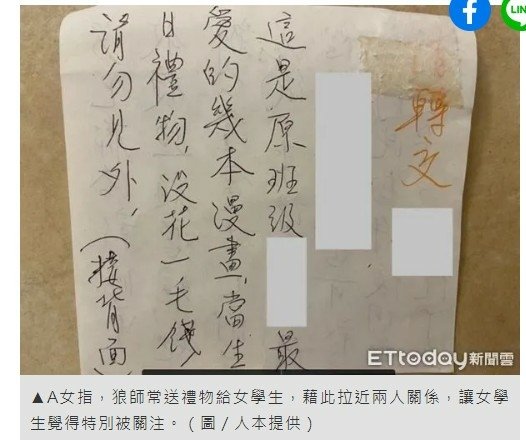 請轉交
這是原班級 最
愛的幾本漫畫,當生
日禮物,沒花一毛錢
請勿見外,(接背面
ETtoday新聞雲
▲A女指，狼師常送禮物給女學生，藉此拉近兩人關係，讓女學
生覺得特別被關注。（圖／人本提供）